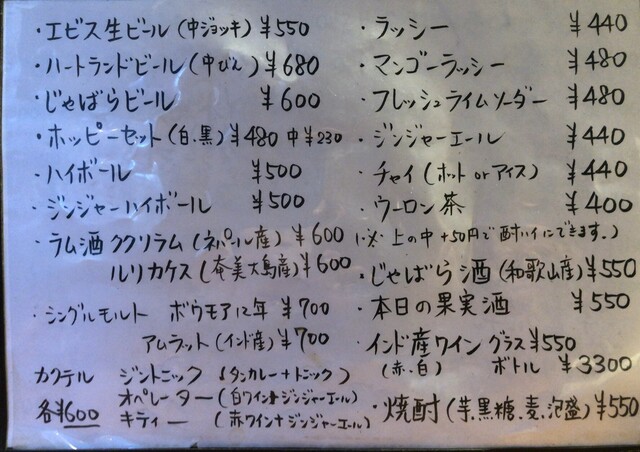 ・エビス生ビール(中ジョッキ) ¥550
・ハートランドビール(中びん) ¥680
・じゃばらビール ¥600
・ホッピーセット(白.黒) ¥480 中¥230
・ハイボール ¥500
・ジンジャーハイボール ¥500
・ラム酒 ククリラム(ネパール産) ¥600
ルリカケス(奄美大島産) ¥600
・シングルモルト ボウモア12年 ¥700
アムラット(インド産) ¥700
カクテル ジントニック (タンカレー+トニック)
各¥600 オペレーター(白ワイン+ジンジャーエール)
キティー (赤ワイン+ジンジャーエール)
・ラッシー ¥440
・マンゴーラッシー ¥480
・フレッシュライムソーダー ¥480
・ジンジャーエール ¥440
・チャイ(ホット or アイス) ¥440
・ウーロン茶 ¥400
(※上の中+50円で酎ハイにできます。)
・じゃばら酒(和歌山産) ¥550
・本日の果実酒 ¥550
・インド産ワイン グラス ¥550
(赤.白) ボトル ¥3300
・焼酎(芋.黒糖.麦.泡盛) ¥550